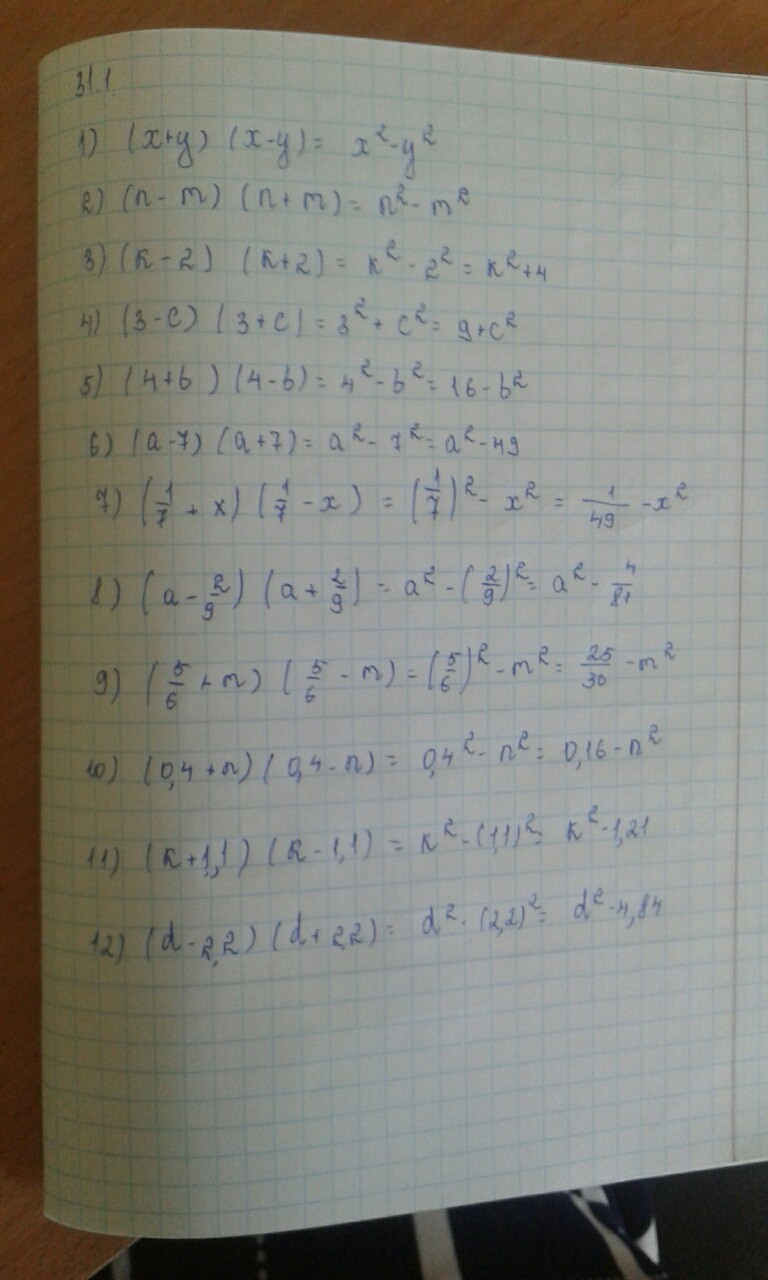 31.1
1) (x+y) (x-y) = x²-y²
2) (n-m) (n+m) = n²-m²
3) (к-2) (к+2) = к²-2² = к²+4
4) (3-c) (3+c) = 3²+c² = 9+c²
5) (4+b) (4-b) = 4²-b² = 16-b²
6) (a-7) (a+7) = a²-7² = a²-49
7) (1/7+x) (1/7-x) = (1/7)²-x² = 1/49-x²
8) (a-2/9) (a+2/9) = a²-(2/9)² = a²-4/81
9) (5/6+m) (5/6-m) = (5/6)²-m² = 25/30-m²
10) (0,4+n) (0,4-n) = 0,4²-n² = 0,16-n²
11) (к+1,1) (к-1,1) = к²-(1,1)² = к²-1,21
12) (d-2,2) (d+2,2) = d²-(2,2)² = d²-4,84